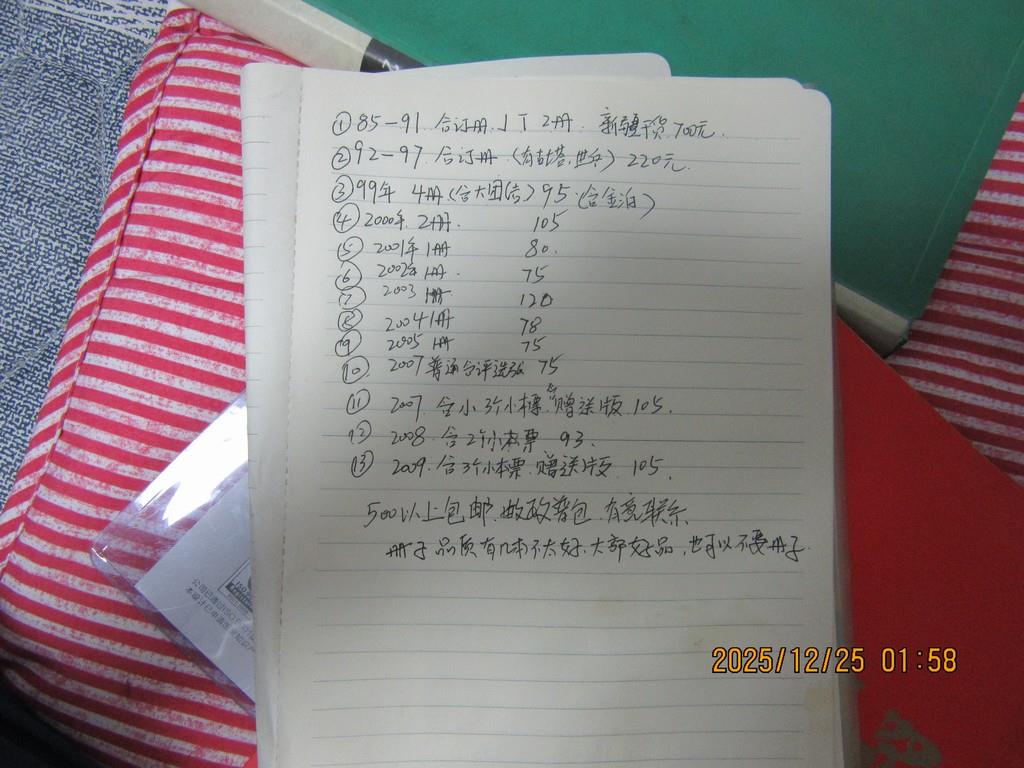 ①85-91 合订册 JT 2册. 新疆干货 700元.
②92-97. 合订册 (有古塔. ) 220元.
③99年 4册(含大团结) 95 (含金泊)
④ 2000年. 2册. 105
⑤ 2001年1册 80.
⑥ 2002年1册. 75
⑦ 2003 1册 120
⑧ 2004 1册 78
⑨ 2005 1册 75
⑩ 2007普通含评选张 75
⑪ 2007. 含小 3个小本票 赠送版 105.
⑫ 2008. 含2个小本票 93.
⑬ 2009. 含3个小本票. 赠送版 105.
500以上包邮. 邮政普包. 有意联系.
册子品质有几本不太好. 大部好品. 也可以不要册子.
2025/12/25 01:58